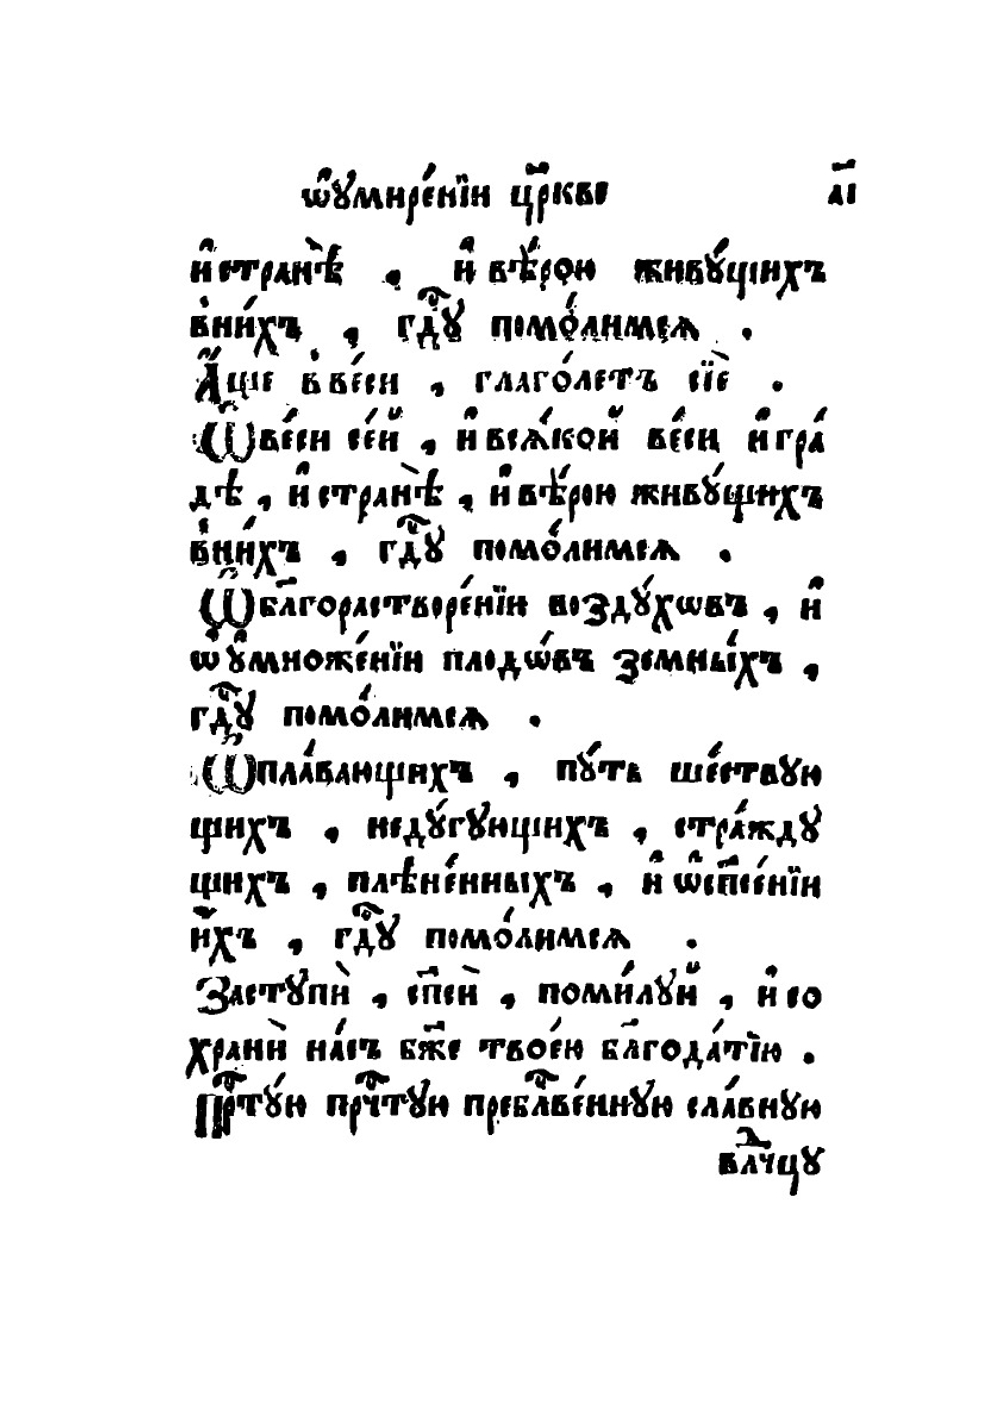 ѡ҆ᲂумире́нїи цр҃кве а҃і
и҆странѣ̀ , и҆ вѣ́рою живꙋ́щихъ
вни́хъ , гдⷭ҇ꙋ помо́лимсѧ .
А҆́ще в҆ве́си , глаго́летъ сїѐ .
Ѡ҆ве́си се́й , и҆всѧ́кой ве́си и҆гра́
дѣ , и҆странѣ̀ , и҆вѣ́рою живꙋ́щихъ
вни́хъ , гдⷭ҇ꙋ помо́лимсѧ .
Ѡ҆бл҃горастворе́нїи воздꙋ́хѡвъ , и҆
ѡ҆ꙋ҆множе́нїи плодѡ́въ земны́хъ ,
гдⷭ҇ꙋ помо́лимсѧ .
Ѡ҆пла́вающихъ , пꙋ́ть ше́ствꙋю
щихъ , недꙋ́гꙋющихъ , стра́ждꙋ
щихъ , плѣне́нныхъ , и҆ ѡ҆сп҃се́нїи
и҆́хъ , гдⷭ҇ꙋ помо́лимсѧ .
Застꙋпѝ , сп҃сѝ , поми́лꙋй , и҆ со
хранѝ на́съ бж҃е твое́ю бл҃года́тїю .
Прⷭ҇тꙋ́ю прчⷭ҇тꙋю пребл҃ве́ннꙋю сла́внꙋю
влⷣчцꙋ